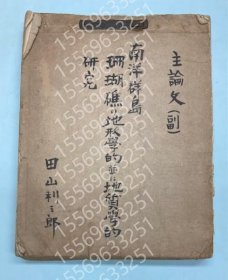 主論文(副)
南洋群島
珊瑚礁ノ地形學的並ニ地質學的
研究
田山利三郎
15569633251
15569633251
15569633251